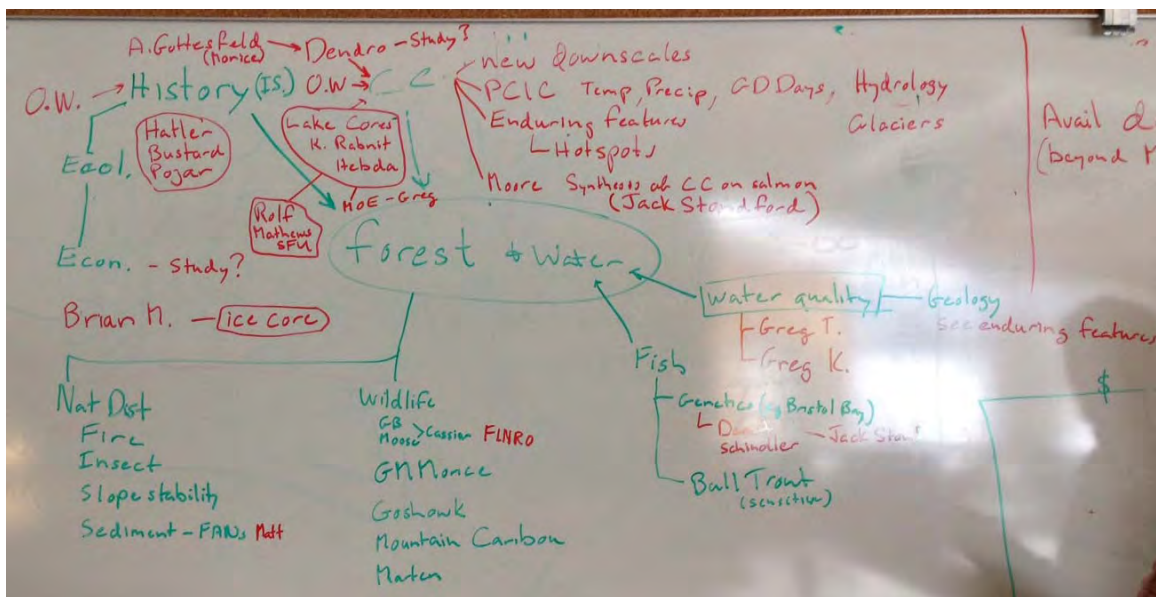 A. Gottesfeld → Dendro - Study?
(Nonice)
O.W. → History (IS.) O.W → CC
New Downscales
PCIC Temp, Precip, GD Days, Hydrology
Glaciers
Enduring features
Hotspots
Moore Synthesis of CC on salmon
(Jack Standford)
Avail
(beyond
Hatler
Bustard
Pojar
Lake Cores
K. Rabnit
Hebda
MOE - Greg
Rolf
Mathews
SFU
Ecol.
Econ. - Study?
Brian M. - ice core
Forest & Water
Water quality - Geology
see enduring features
Greg T.
Greg K.
$
Fish
Genetics (eg Bristol Bay)
Schindler - Jack
Ball Trout
(sensitive)
Nat Dist
Fire
Insect
Slope stability
Sediment - FANs Matt
Wildlife
GB
Moose > Cassier FLNRO
GN Nonce
Goshawk
Mountain Caribou
Marten